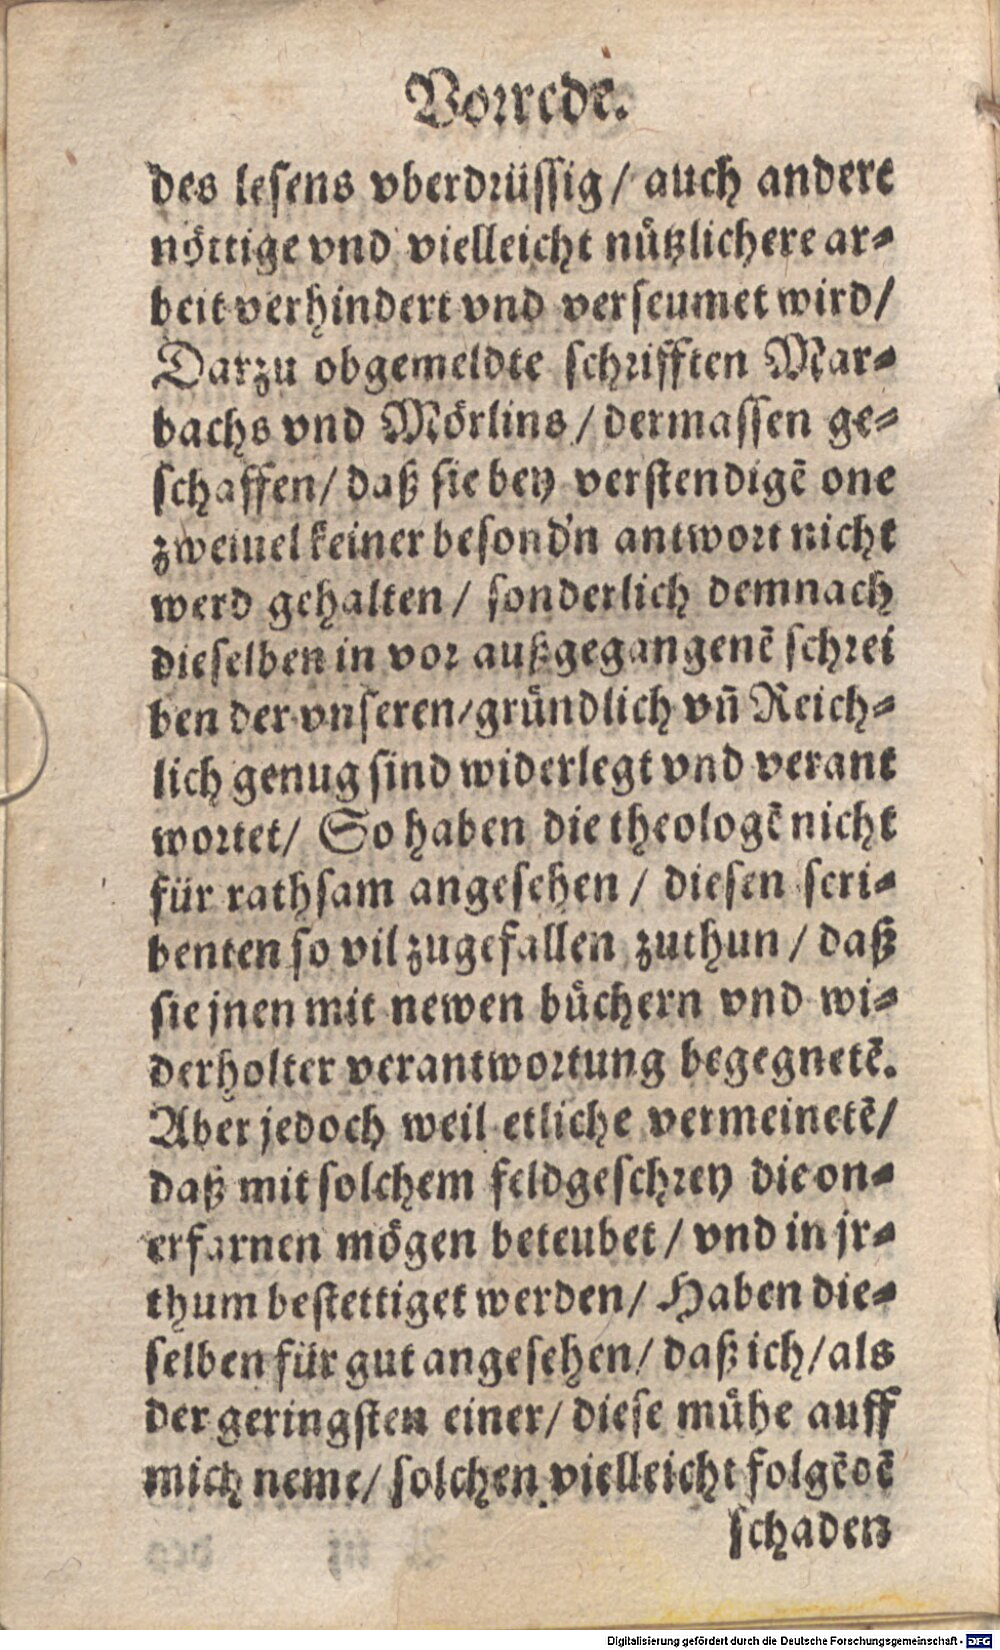 Vorrede.
des lesens vberdrüssig / auch andere
nöttige vnd vielleicht nützlichere ar⸗
beit verhindert vnd verseumet wird /
Darzu obgemeldte schrifften Mar⸗
bachs vnd Mörlins / dermassen ge⸗
schaffen / daß sie bey verstendigē one
zweiuel keiner besond'n antwort nicht
werd gehalten / sonderlich demnach
dieselben in vor außgegangenē schrei
ben der vnseren / gründlich vñ Reich⸗
lich genug sind widerlegt vnd verant
wortet / So haben die theologē nicht
für rathsam angesehen / diesen scri⸗
benten so vil zugefallen zuthun / daß
sie jnen mit newen büchern vnd wi⸗
derholter verantwortung begegnetē.
Aber jedoch weil etliche vermeinetē /
daß mit solchem feldgeschrey die on⸗
erfarnen mögen beteubet / vnd in jr⸗
thum bestettiget werden / Haben die⸗
selben für gut angesehen / daß ich / als
der geringsten einer / diese mühe auff
mich neme / solchen vielleicht folgēdē
schaden
Digitalisierung gefördert durch die Deutsche Forschungsgemeinschaft - DFG